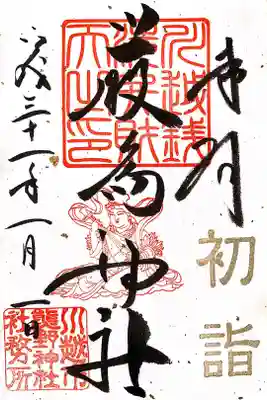 奉拝
初詣
厳島神社
川越銭
洗弁財
天之印
平成三十一年一月一日
川越市
熊野神社
社務所